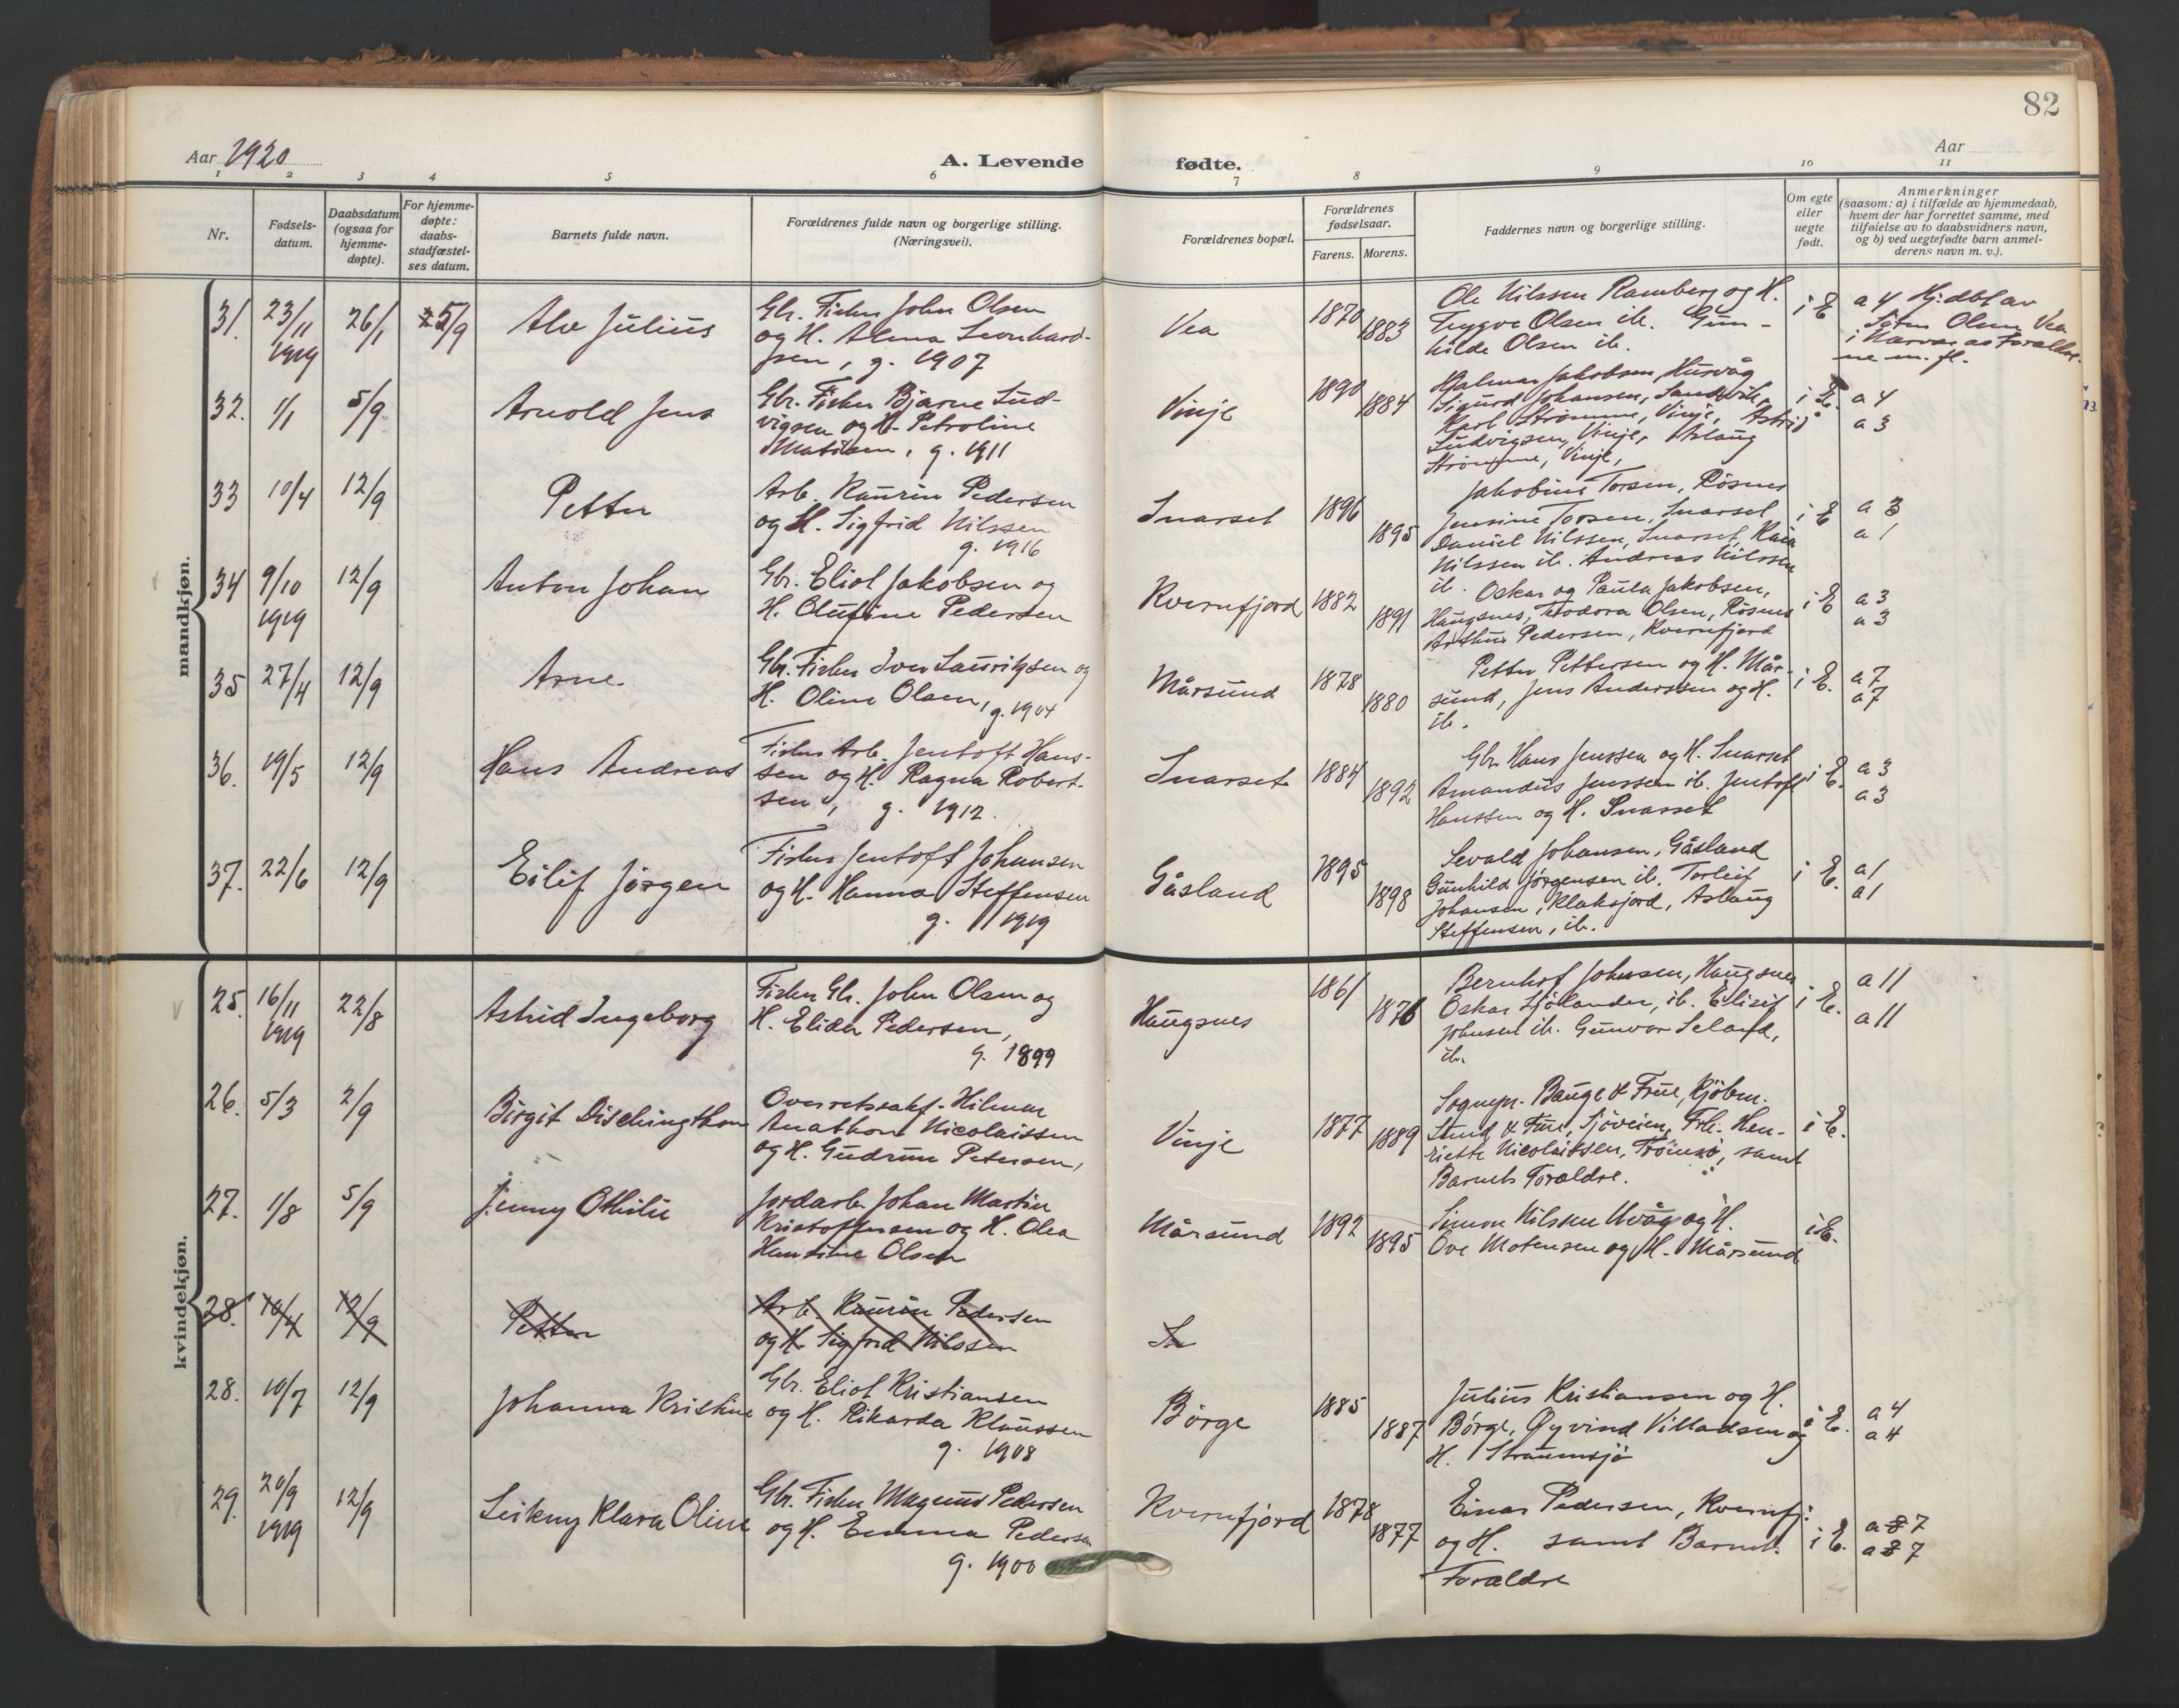 82
Aar 1920
A. Levende
fødte.
Aar
1 2 3 4 5 6 7 8 9 10 11
Nr.
Fødsels-
datum.
Daabsdatum
(ogsaa for
hjemme-
døpte).
For hjemme-
døpte:
daabs-
stadfæstel-
ses datum.
Barnets fulde navn.
Forældrenes fulde navn og borgerlige stilling.
(Næringsvei).
Forældrenes bopæl.
Forældrenes
fødselsaar.
Farens. Morens.
Faddernes navn og borgerlige stilling.
Om egte
eller
uegte
født.
Anmerkninger
(saasom: a) i tilfælde av hjemmedaab,
hvem der har forrettet samme, med
tilføielse av to daabsvidners navn,
og b) ved uegtefødte barn anmel-
derens navn m. v.).
mandkjøn.
31. 23/11 1919 26/1 5/9 Alv Julius
Gbr. Fisker John Olsen
og H. Alma Leonhard-
sen, g. 1907
Vea 1870 1883
Ole Nilssen Ramberg og H.
Trygve Olsen ib. Gun-
hilde Olsen ib.
i E a 4 Hj.dbt av
Olsen Vea
i Nærvær av Forældre-
ne m. fl.
32. 1/1 5/9 Arnold Jens
Gbr. Fisker Bjarne Lud-
vigsen og H. Petroline
g. 1911
Vinje 1890 1884
Hjalmar Jakobsen, Husvåg
Sigurd Johansen, Sandvik,
Karl Strømme, Vinje, Astrid
Ludvigsen, Vinje, Aslaug
Strømme, Vinje,
i E. a 4
a 3
33 10/4 12/9 Petter
Arb. Kaurin Pedersen
og H. Sigfrid Nilssen
g. 1916
Snarset 1896 1895
Jakobine Torsen, Røsnes
Jensine Torsen, Snarset
Daniel Nilssen, Snarset, Kaia
Nilssen ib. Andreas Nilssen
ib.
i E a 3
a 1
34 9/10 1919 12/9 Anton Johan
Gbr. Eliot Jakobsen og
H. Olufine Pedersen
Kvernfjord 1882 1891
Oskar og Paula Jakobsen,
Haugsnes, Teodora Olsen, Røsnes
Arthur Pedersen, Kvernfjord
i E a 3
a 3
35 27/4 12/9 Arne
Gbr. Fisker Iver Lauritsen og
H. Oline Olsen, g. 1904
Mårsund 1878 1880
Petter Pettersen og H. Mår-
sund, Jens Anderssen og H.
ib.
i E. a 7
a 7
36. 19/5 12/9 Hans Andreas
Fisker Arb. Jentoft Hans-
sen og H. Ragna Robert-
sen, g. 1912.
Snarset 1884 1892
Gbr. Hans Jenssen og H. Snarset
Amandus Jenssen ib. Jentoft
Hanssen og H. Snarset
i E. a 3
a 3
37. 22/6 12/9 Eilif Jörgen
Fisker Jentoft Johansen
og H. Hanna Steffensen
g. 1919
Gåsland 1895 1898
Sevald Johansen, Gåsland
Gunhild Jørgensen ib. Torleif
Johansen, Klaksjord, Aslaug
Steffensen, ib.
i E. a 1
a 1
kvindekjøn.
25. 16/11 1919 22/8 Astrid Ingeborg
Fisker Gbr. John Olsen og
H. Elida Pedersen,
g. 1899
Haugsnes 1861 1876
Bernhof Johnsen, Haugsnes
Oskar Sjølander, ib. Elisif
Johnsen ib. Gunvor Seland,
ib.
i E. a 11
a 11
26. 5/3 2/9 Birgit Dischingthon
Overretssakf. Hilmar
Anathon Nicolaissen
og H. Gudrun Petersen,
Vinje 1877 1889
Sognepr. Bauge & Frue, Kjøbm.
Stend & Frue, Sjöveien, Frk. Hen-
riette Nicolaissen, Tromsö, samt
Barnets Forældre.
i E.
27. 1/8 5/9 Jenny Othilie
Jordarb. Johan Martin
Kristoffersen og H. Olea
Hansine Olsen
Mårsund 1892 1895
Simon Nilssen Uvåg og H.
Ove Motensen og H. Mårsund
i E.
28. 10/4 12/9 Petter
Arb. Kaurin Pedersen
og H. Sigfrid Nilssen
Sn
28. 10/7 12/9 Johanna Kristine
Gbr. Eliot Kristiansen
og H. Rikarda Klaussen
g. 1908
Börge 1885 1887
Julius Kristiansen og H.
Börge, Øyvind Villadsen og
H. Straumsjö
i E. a 4
a 4
29. 20/9 1919 12/9 Leikny Klara Oline
Gbr. Fisker Magnus Pedersen
og H. Emma Pedersen
g. 1900
Kvernfjord 1878 1877
Einar Pedersen, Kvernfj:
og H. samt Barnets
Forældre
i E. a 7
a 7